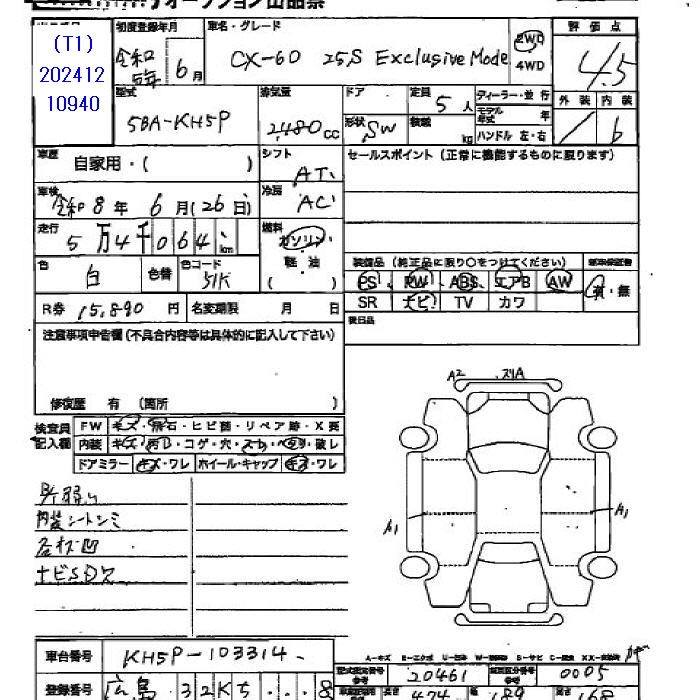 オークション出品票
(T1)
202412
10940
初度登録年月
令和5年 6月
車名・グレード
CX-60 25S Exclusive Mode
2WD
4WD
評価点
4.5
型式
5BA-KH5P
排気量
2,480cc
ドア
形状 SW
定員 5人
積載 kg
ディーラー・並行
モデル年式 年
ハンドル 左・右
外装 内装
b
車歴
自家用・( )
シフト
AT
セールスポイント (正常に機能するものに限ります)
車検
令和8年 6月(26日)
冷房
AC
走行
5万4千064km
燃料
ガソリン
軽油
( )
色
白
色替
色コード
51K
装備品 (純正品に限り○をつけてください)
PS PW ABS エアB AW
SR ナビ TV カワ
有・無
R券 15,890円
名変期限 月 日
後日品
注意事項申告欄(不具合内容等は具体的に記入して下さい)
修復歴 有 (箇所 )
検査員記入欄
FW キズ・飛石・ヒビ割・リペア跡・X要
内装 キズ・汚れ・コゲ・穴・スレ・ヘタリ・破レ
ドアミラー キズ・ワレ ホイール・キャップ キズ・ワレ
A2 スリA
A1 A1
内装シートシミ
ナビSD欠
車台番号 KH5P-103314
型式指定番号 20461
類別区分番号 0005
登録番号 広島 32K5...8
長さ 474 幅 189 高さ 168